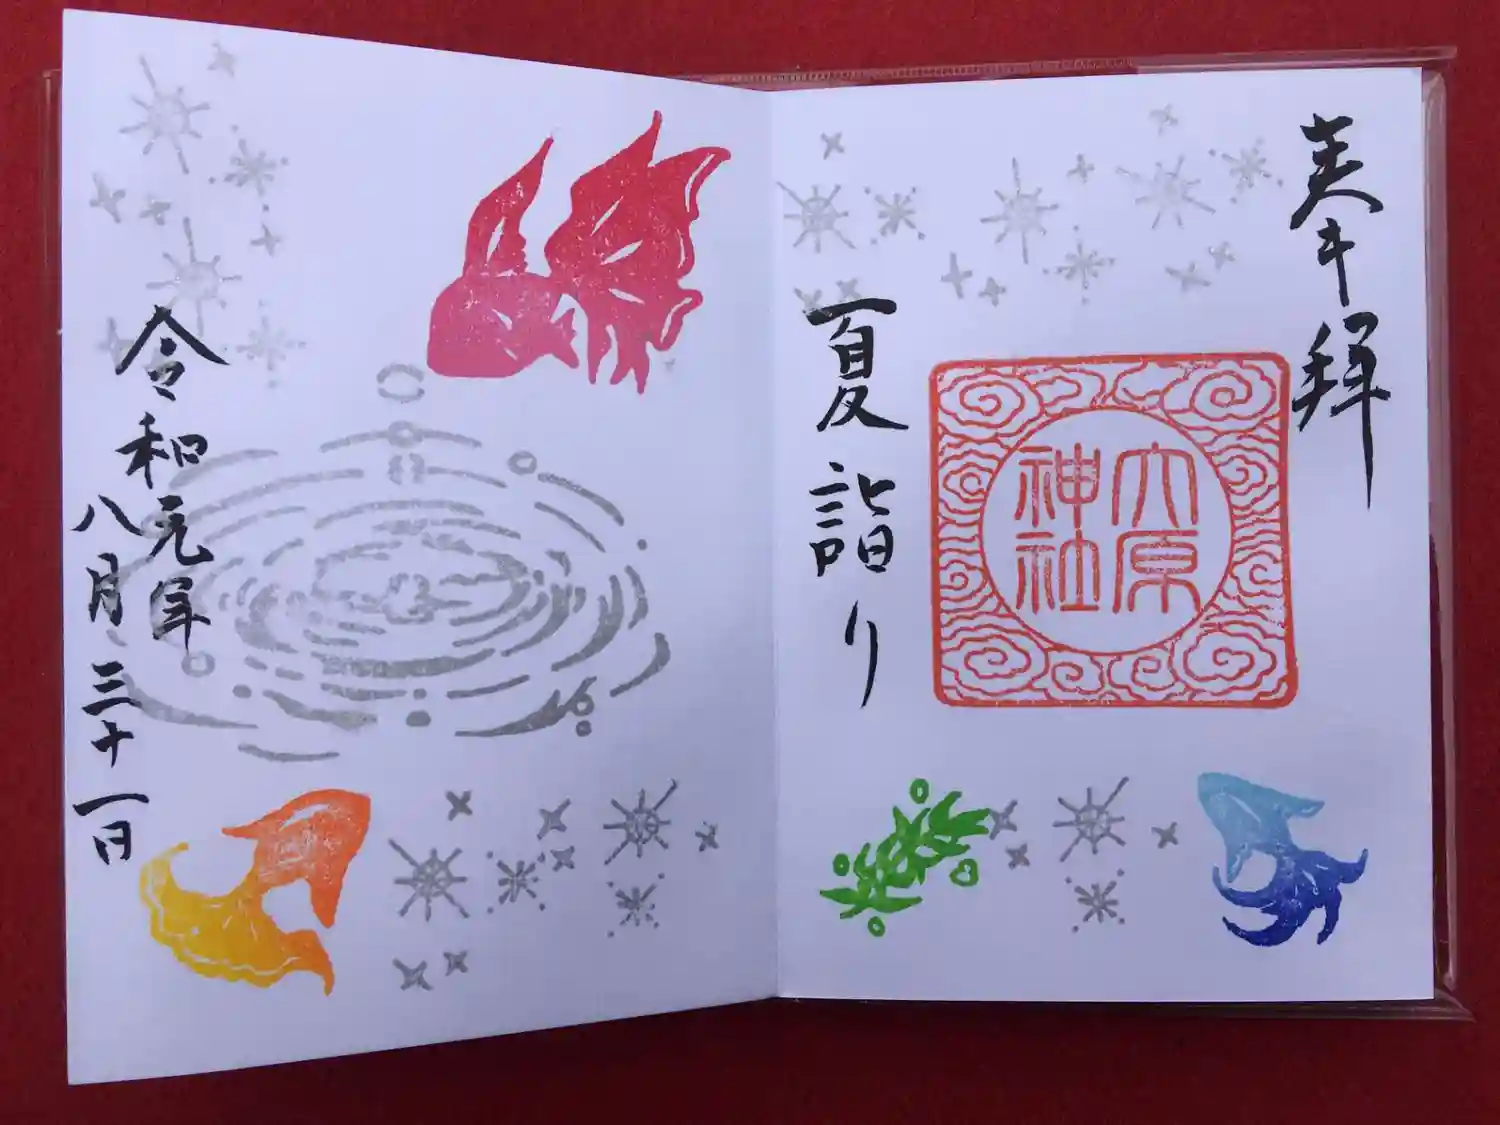 奉拝
六原
神社
夏詣り
令和元年
八月三十一日